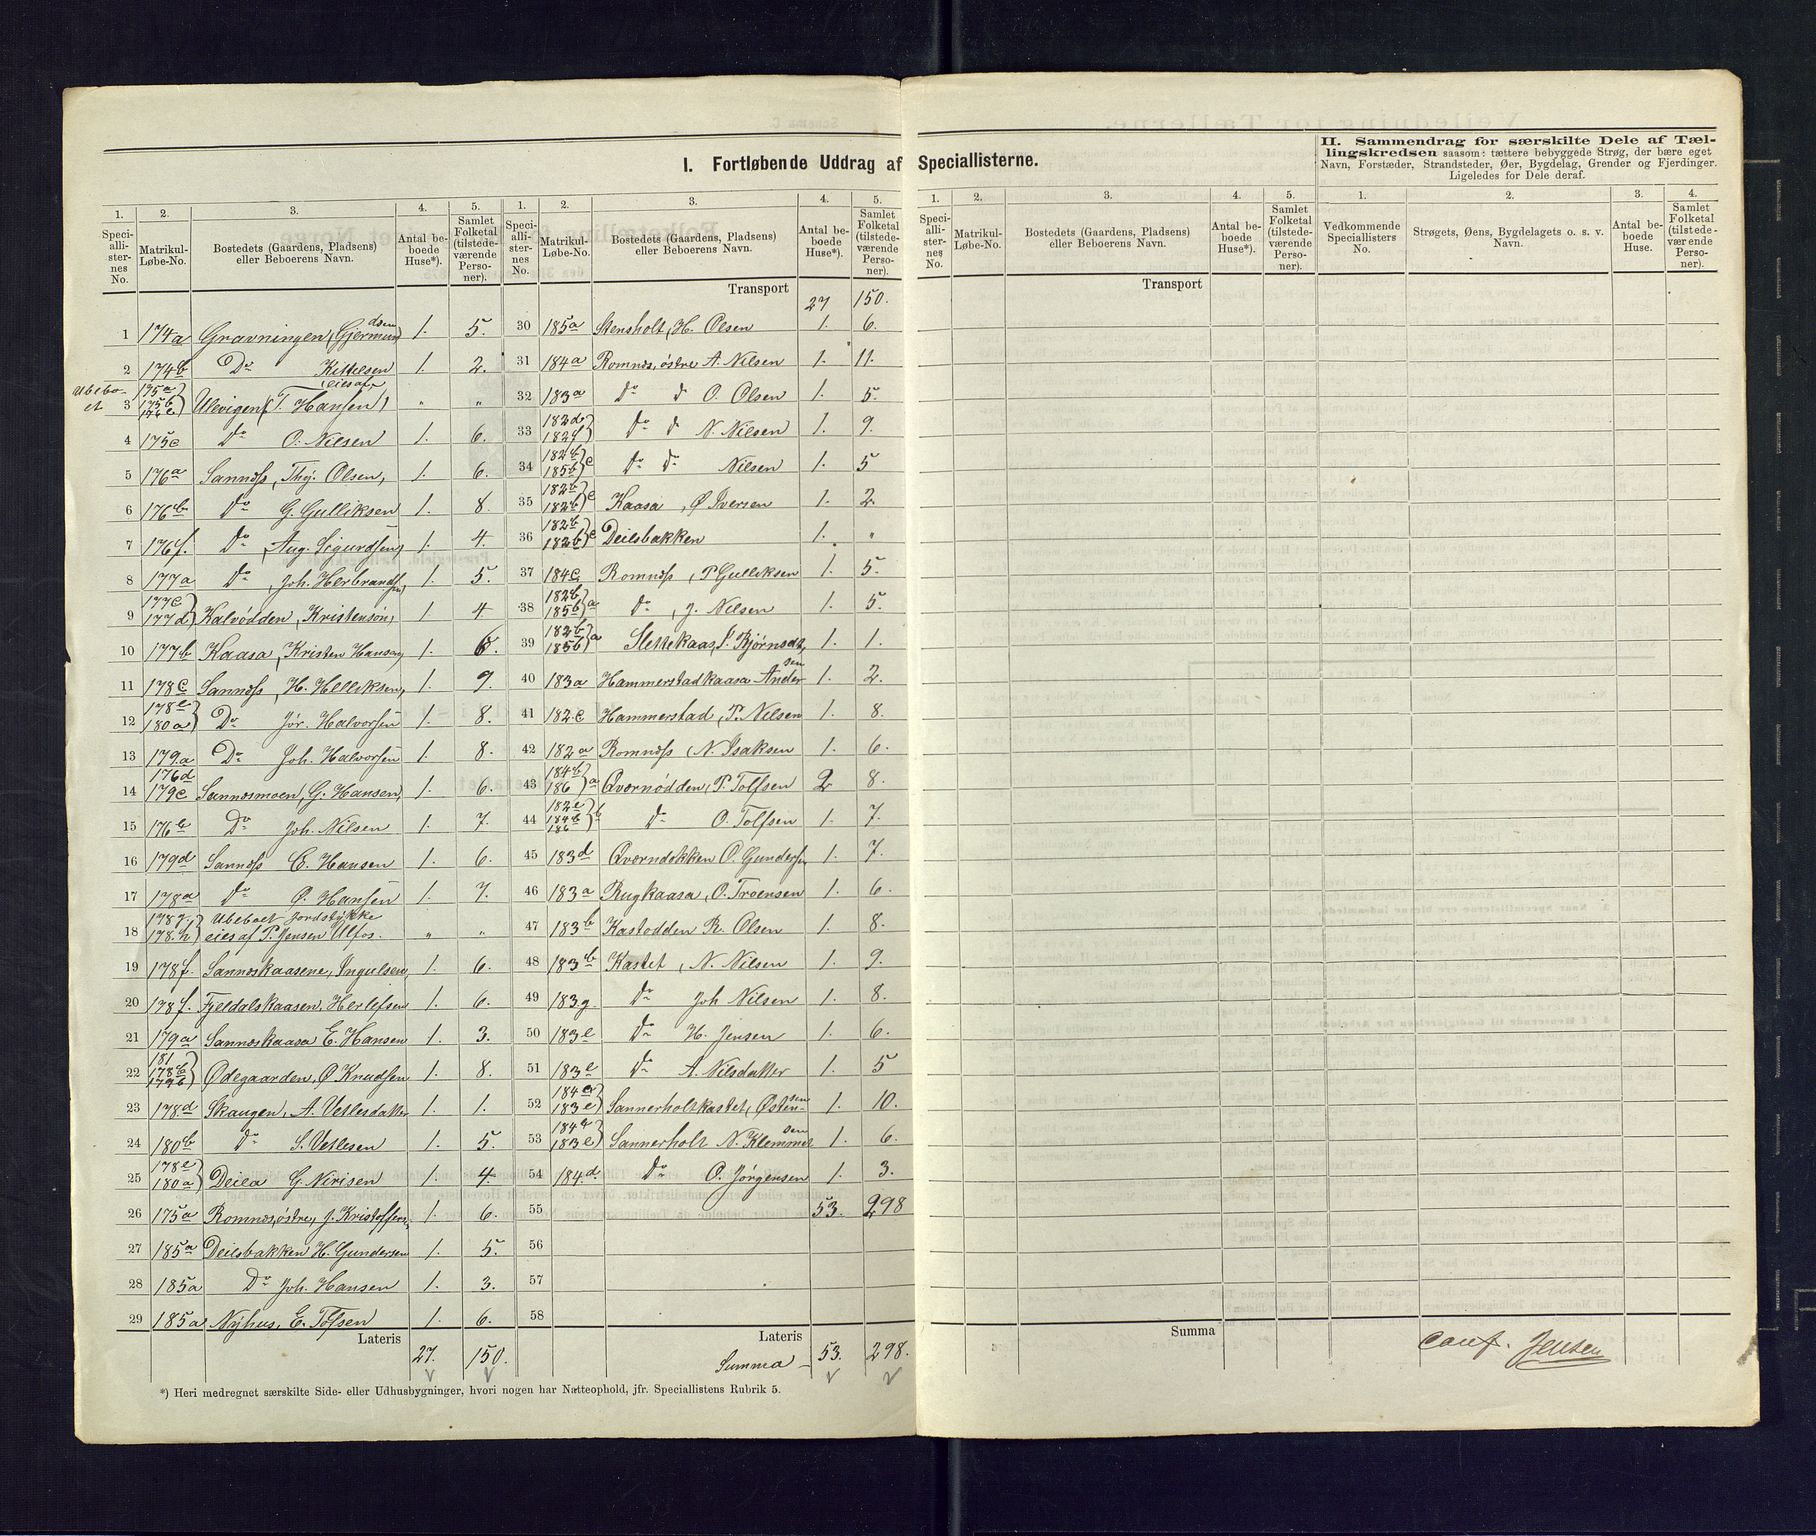 I. Fortløbende Uddrag af Speciallisterne.
II. Sammendrag for særskilte Dele af Tællingskredsen saasom: tættere bebyggede Strøg, der bære eget
Navn, Forstæder, Strandsteder, Øer, Bygdelag, Grender og Fjerdinger.
Ligeledes for Dele deraf.
1. 2. 3. 4. 5. 1. 2. 3. 4. 5. 1. 2. 3. 4. 5. 1. 2. 3. 4.
Speciallisternes No. Matrikul-Løbe-No. Bostedets (Gaardens, Pladsens) eller Beboerens Navn. Antal beboede Huse*). Samlet Folketal (tilstedeværende Personer).
Speciallisternes No. Matrikul-Løbe-No. Bostedets (Gaardens, Pladsens) eller Beboerens Navn. Antal beboede Huse*). Samlet Folketal (tilstedeværende Personer).
Speciallisternes No. Matrikul-Løbe-No. Bostedets (Gaardens, Pladsens) eller Beboerens Navn. Antal beboede Huse*). Samlet Folketal (tilstedeværende Personer).
Vedkommende Speciallisters No. Strøgets, Øens, Bygdelagets o. s. v. Navn. Antal beboede Huse. Samlet Folketal (tilstedeværende Personer).
1 174a Gravningen, Gjermundsen 1. 5.
2 174b Do Kittilsen 1. 2.
Ubeboet 3 175a 175b Ulevigen (eies af T. Hansen) " "
4 175c Do O. Nilsen 1. 6.
5 176a Sannøss, Thj. Olsen, 1. 6.
6 176b Do G. Gulliksen 1. 8.
7 176f. Do, Aug. Sigurdsen, 1. 4.
8 177a Do, Joh. Herbrandsen, 1. 5.
9 177c 177d Kalvødden, Kristensøn, 1 4
10 177b Kaasa, Kristen Hansen, 1. 6.
11 178c Sannøss, H. Helliksen, 1. 9.
12 178e 180a Do Jør. Halvorsen 1. 8.
13 179a Do Joh. Halvorsen 1. 8.
14 176d 179c Sannøsmoen, G. Hansen, 1. 6.
15 176e Do Joh. Nilsen 1. 7.
16 179d Sannøss E. Hansen 1. 6.
17 178a Do Ø. Hansen 1. 7.
18 178g. 178.h Ubeboet Jordstykke eies af P. Jensen Ulfos. " "
19 178f. Sannøskaasene, Ingulsen, 1. 6.
20 178f. Fjeldalskaasen, Herlefsen 1. 6.
21 179a Sannøskaasa E. Hansen 1. 3.
22 181 178b 179b Ødegaarden, Ø Knudsen 1. 8.
23 178d Skaugen, A. Vetlesdatter 1. 1.
24 180b Do S. Vetlesen 1. 5.
25 178e 180a Deila G. Nirisen 1. 4
26 175a Romnøs, østre, J. Kristoffers, 1. 6.
27 185a Deilsbakken H. Gundersen 1. 5.
28 185a Do Joh. Hansen 1. 3.
29 185a Nyhus, E. Tolfsen 1. 6.
Lateris 27. 150.
Transport 27 150.
30 185a Stensholt, H. Olsen 1. 6.
31 184a Romnøs, østre A. Nilsen 1. 11.
32 183a Do d O. Olsen 1. 5.
33 182d 182f Do d N. Nilsen 1. 9.
34 182b 185b c Do do Nilsen 1. 5
35 182b 182b c Kaasa, Ø Iversen 1. 2.
36 182b 182b c Deilsbakken 1. "
37 184c Romnøss, P Gulliksen 1. 5.
38 182b 185b a Do, J. Nilsen 1. 5.
39 182b 185b a Slettekaas, Bjørnsdt, 1. 1.
40 183a Hammerstadkaasa Andersen 1. 2.
41 182.c Hammerstad, P. Nilsen 1. 8.
42 182a Romnøss N. Isaksen 1. 6.
43 184b 186 a Qvernødden, P. Tolfsen 2 8.
44 182e 184b 186 b Do O. Tolfsen 1. 7.
45 183d Qverndokken O. Gundersen 1. 7.
46 183a Rugkaasa, O. Troensen 1. 6.
47 183b Kastodden R. Olsen 1. 8.
48 183b Kastet, N. Nilsen 1. 9.
49 183g Do Joh Nilsen 1. 8.
50 183e Do H. Jensen 1. 6.
51 183e Do A. Nilsdatter 1. 5
52 184e 183e Sannerholtkastet, Østensen 1. 10.
53 184e 183e Sannerholt N. Klemmetsen 1. 6.
54 184.d. Do O. Jørgensen 1. 3.
55 53. 298
56
57
58
Lateris
Summa 53. 298.
Transport
Summa
Conf. Jensen
*) Heri medregnet særskilte Side- eller Udhusbygninger, hvori nogen har Natteophold, jfr. Speciallistens Rubrik 5.